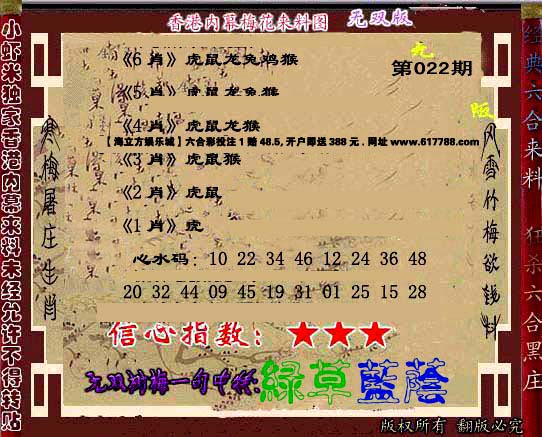 香港内幕梅花来料图 无双版
小虾米独家香港内幕来料未经允许不得转贴
寒梅屠庄生肖
无 版
第022期
《6 肖》虎鼠龙兔鸡猴
《5 肖》虎鼠龙兔猴
《4 肖》虎鼠龙猴
【海立方娱乐城】六合彩投注 1 赔 48.5, 开户即送 388 元 . 网址 www.617788.com
《3 肖》虎鼠猴
《2 肖》虎鼠
《1 肖》虎
心水码: 10 22 34 46 12 24 36 48
20 32 44 09 45 19 31 01 25 15 28
信心指数: ★★★
无双剑梅一句中特:綠草藍蔭
风雪竹梅欲钱料
经典六合来料 狂杀六合黑庄
版权所有 翻版必究